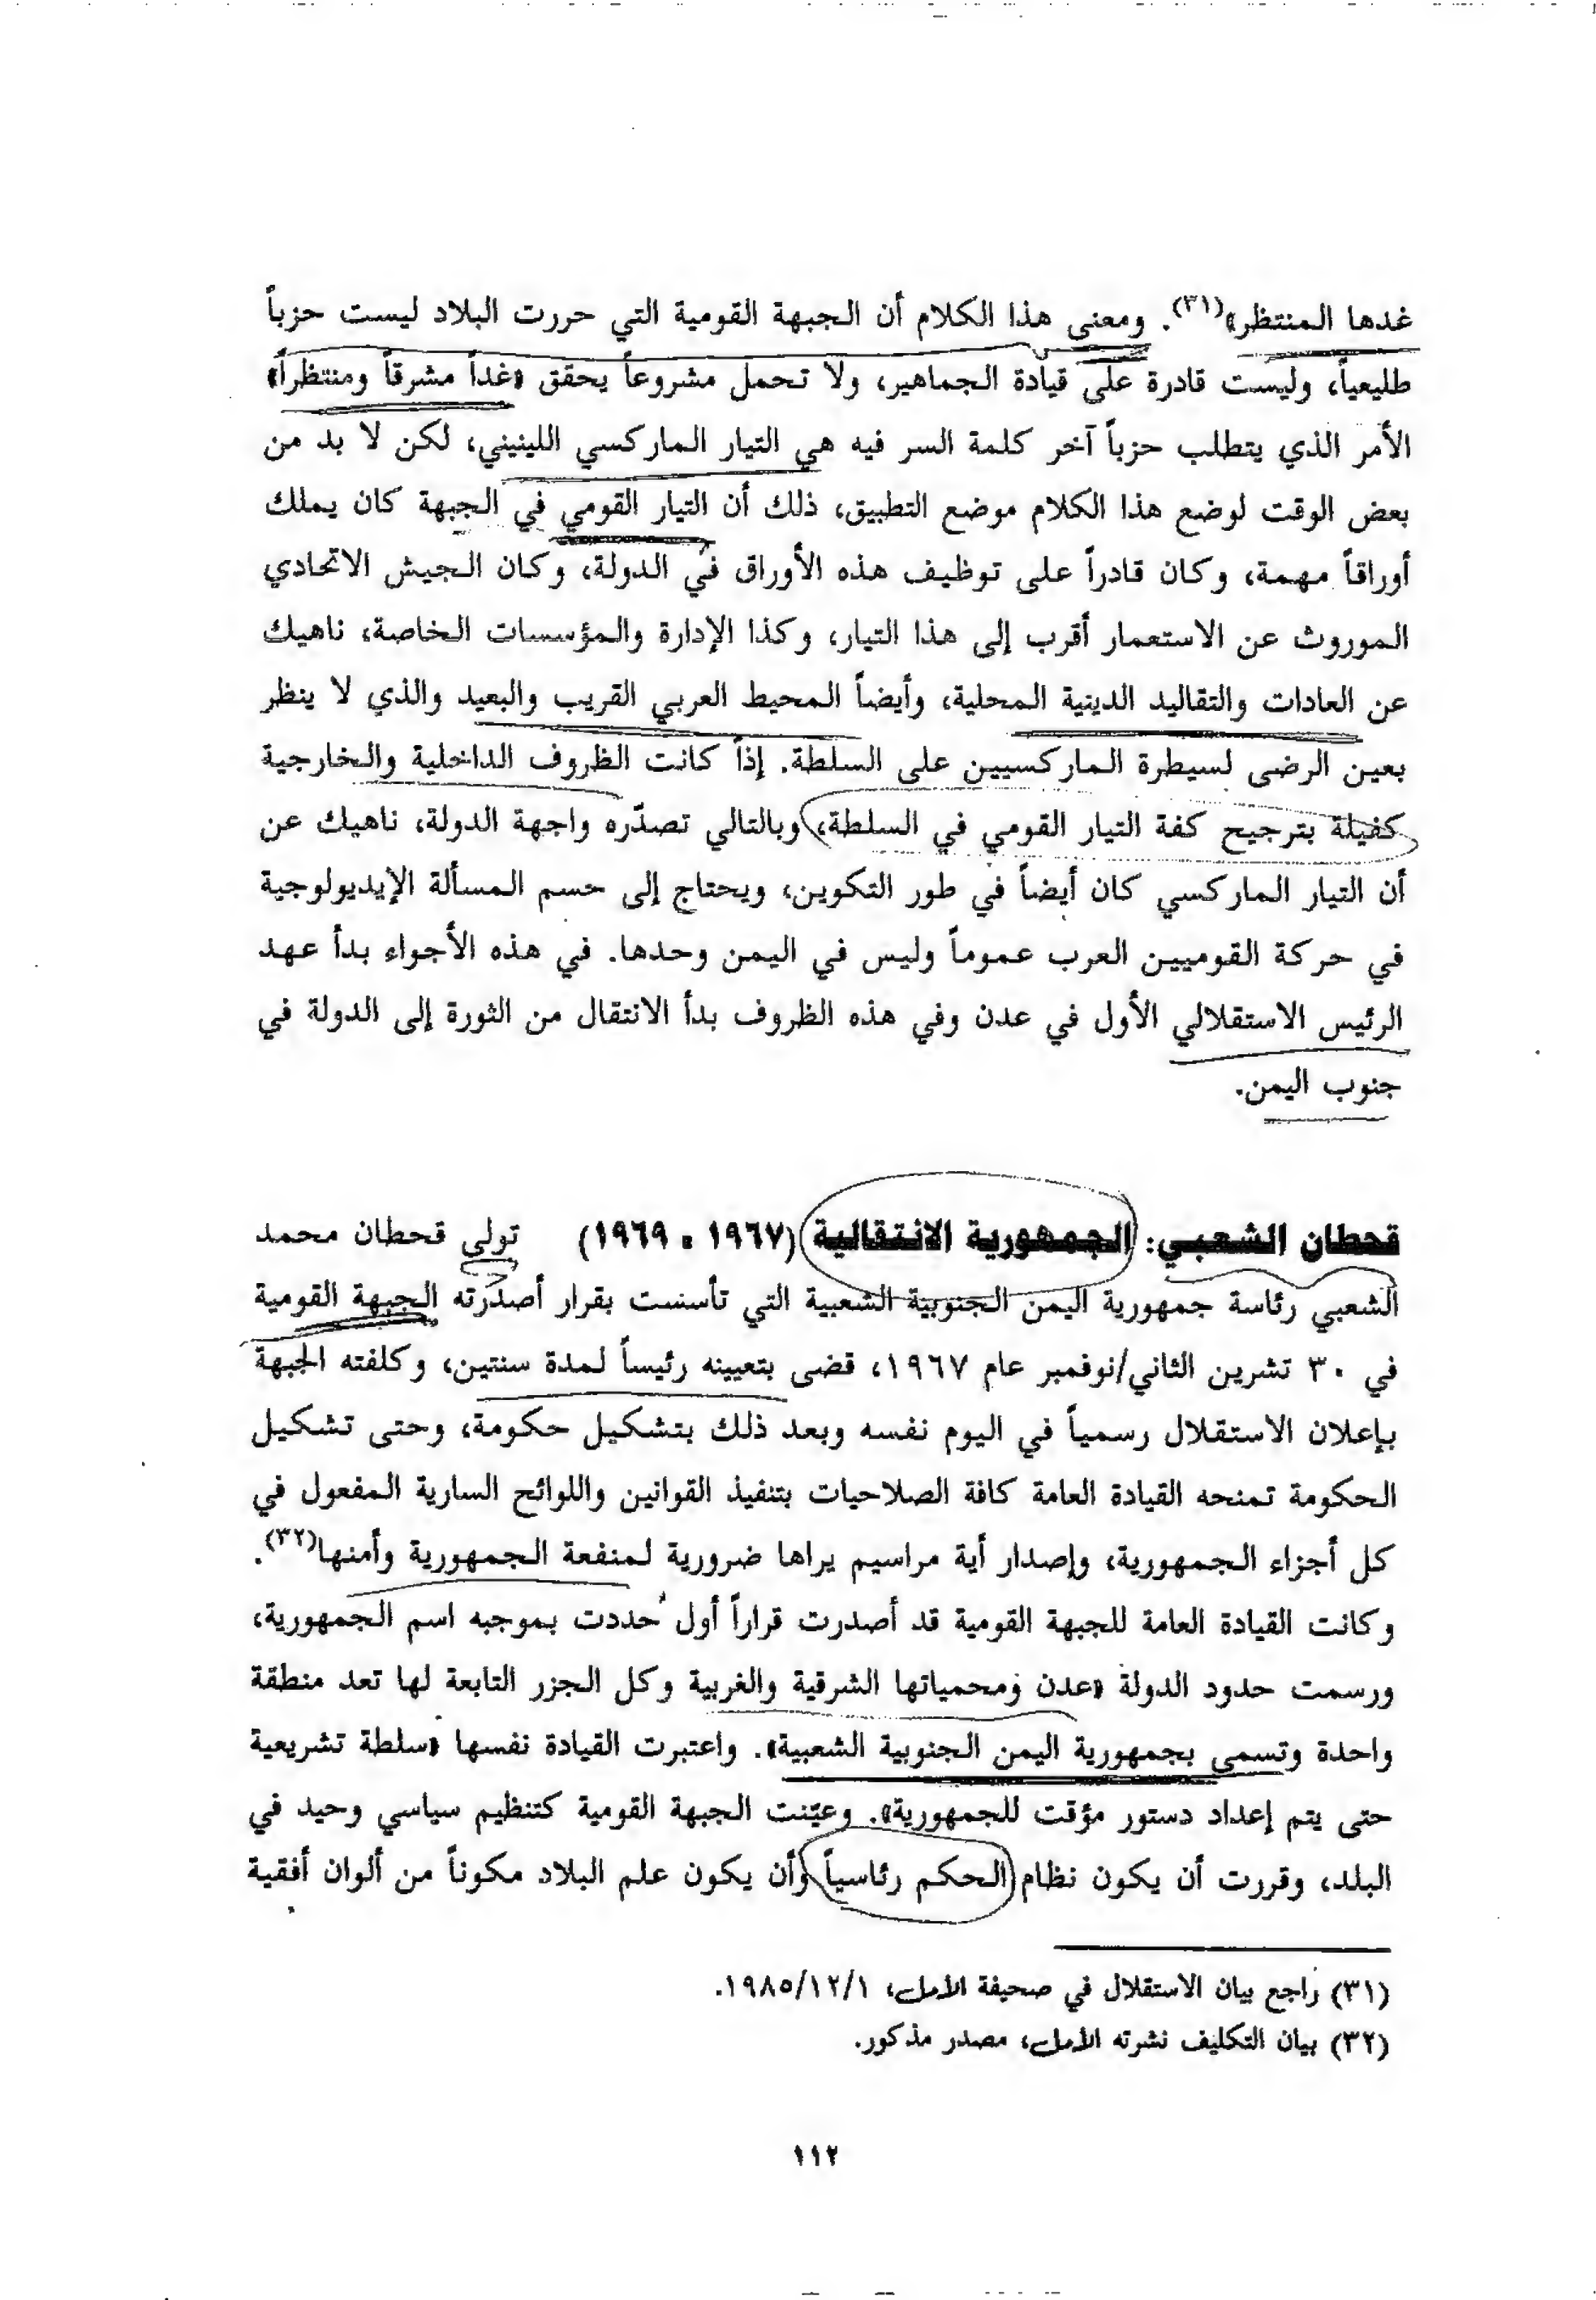 غدها المنتظر»(٣١). ومعنى هذا الكلام أن الجبهة القومية التي حررت البلاد ليست حزباً
طليعياً، وليست قادرة على قيادة الجماهير، ولا تحمل مشروعاً يحقق «غداً مشرقاً ومنتظراً»
الأمر الذي يتطلب حزباً آخر كلمة السر فيه هي التيار الماركسي اللينيني، لكن لا بد من
بعض الوقت لوضع هذا الكلام موضع التطبيق، ذلك أن التيار القومي في الجبهة كان يملك
أوراقاً مهمة، وكان قادراً على توظيف هذه الأوراق في الدولة، وكان الجيش الاتحادي
الموروث عن الاستعمار أقرب إلى هذا التيار، وكذا الإدارة والمؤسسات الخاصة، ناهيك
عن العادات والتقاليد الدينية المحلية، وأيضاً المحيط العربي القريب والبعيد والذي لا ينظر
بعين الرضى لسيطرة الماركسيين على السلطة. إذاً كانت الظروف الداخلية والخارجية
كفيلة بترجيح كفة التيار القومي في السلطة، وبالتالي تصدّره واجهة الدولة، ناهيك عن
أن التيار الماركسي كان أيضاً في طور التكوين، ويحتاج إلى حسم المسألة الإيديولوجية
في حركة القوميين العرب عموماً وليس في اليمن وحدها. في هذه الأجواء بدأ عهد
الرئيس الاستقلالي الأول في عدن وفي هذه الظروف بدأ الانتقال من الثورة إلى الدولة في
جنوب اليمن.
قحطان الشعبي: الجمهورية الانتقالية (١٩٦٧ - ١٩٦٩) تولى قحطان محمد
الشعبي رئاسة جمهورية اليمن الجنوبية الشعبية التي تأسست بقرار أصدرته الجبهة القومية
في ٣٠ تشرين الثاني/نوفمبر عام ١٩٦٧، قضى بتعيينه رئيساً لمدة سنتين، وكلفته الجبهة
بإعلان الاستقلال رسمياً في اليوم نفسه وبعد ذلك بتشكيل حكومة، وحتى تشكيل
الحكومة تمنحه القيادة العامة كافة الصلاحيات بتنفيذ القوانين واللوائح السارية المفعول في
كل أجزاء الجمهورية، وإصدار أية مراسيم يراها ضرورية لمنفعة الجمهورية وأمنها(٣٢).
وكانت القيادة العامة للجبهة القومية قد أصدرت قراراً أول حددت بموجبه اسم الجمهورية،
ورسمت حدود الدولة «عدن ومحمياتها الشرقية والغربية وكل الجزر التابعة لها تعد منطقة
واحدة وتسمى بجمهورية اليمن الجنوبية الشعبية». واعتبرت القيادة نفسها «سلطة تشريعية
حتى يتم إعداد دستور مؤقت للجمهورية». وعيّنت الجبهة القومية كتنظيم سياسي وحيد في
البلد، وقررت أن يكون نظام الحكم رئاسياً وأن يكون علم البلاد مكوناً من ألوان أفقية
(٣١) راجع بيان الاستقلال في صحيفة الأمل، ١٩٨٥/١٢/١.
(٣٢) بيان التكليف نشرته الأمل، مصدر مذكور.
١١٢